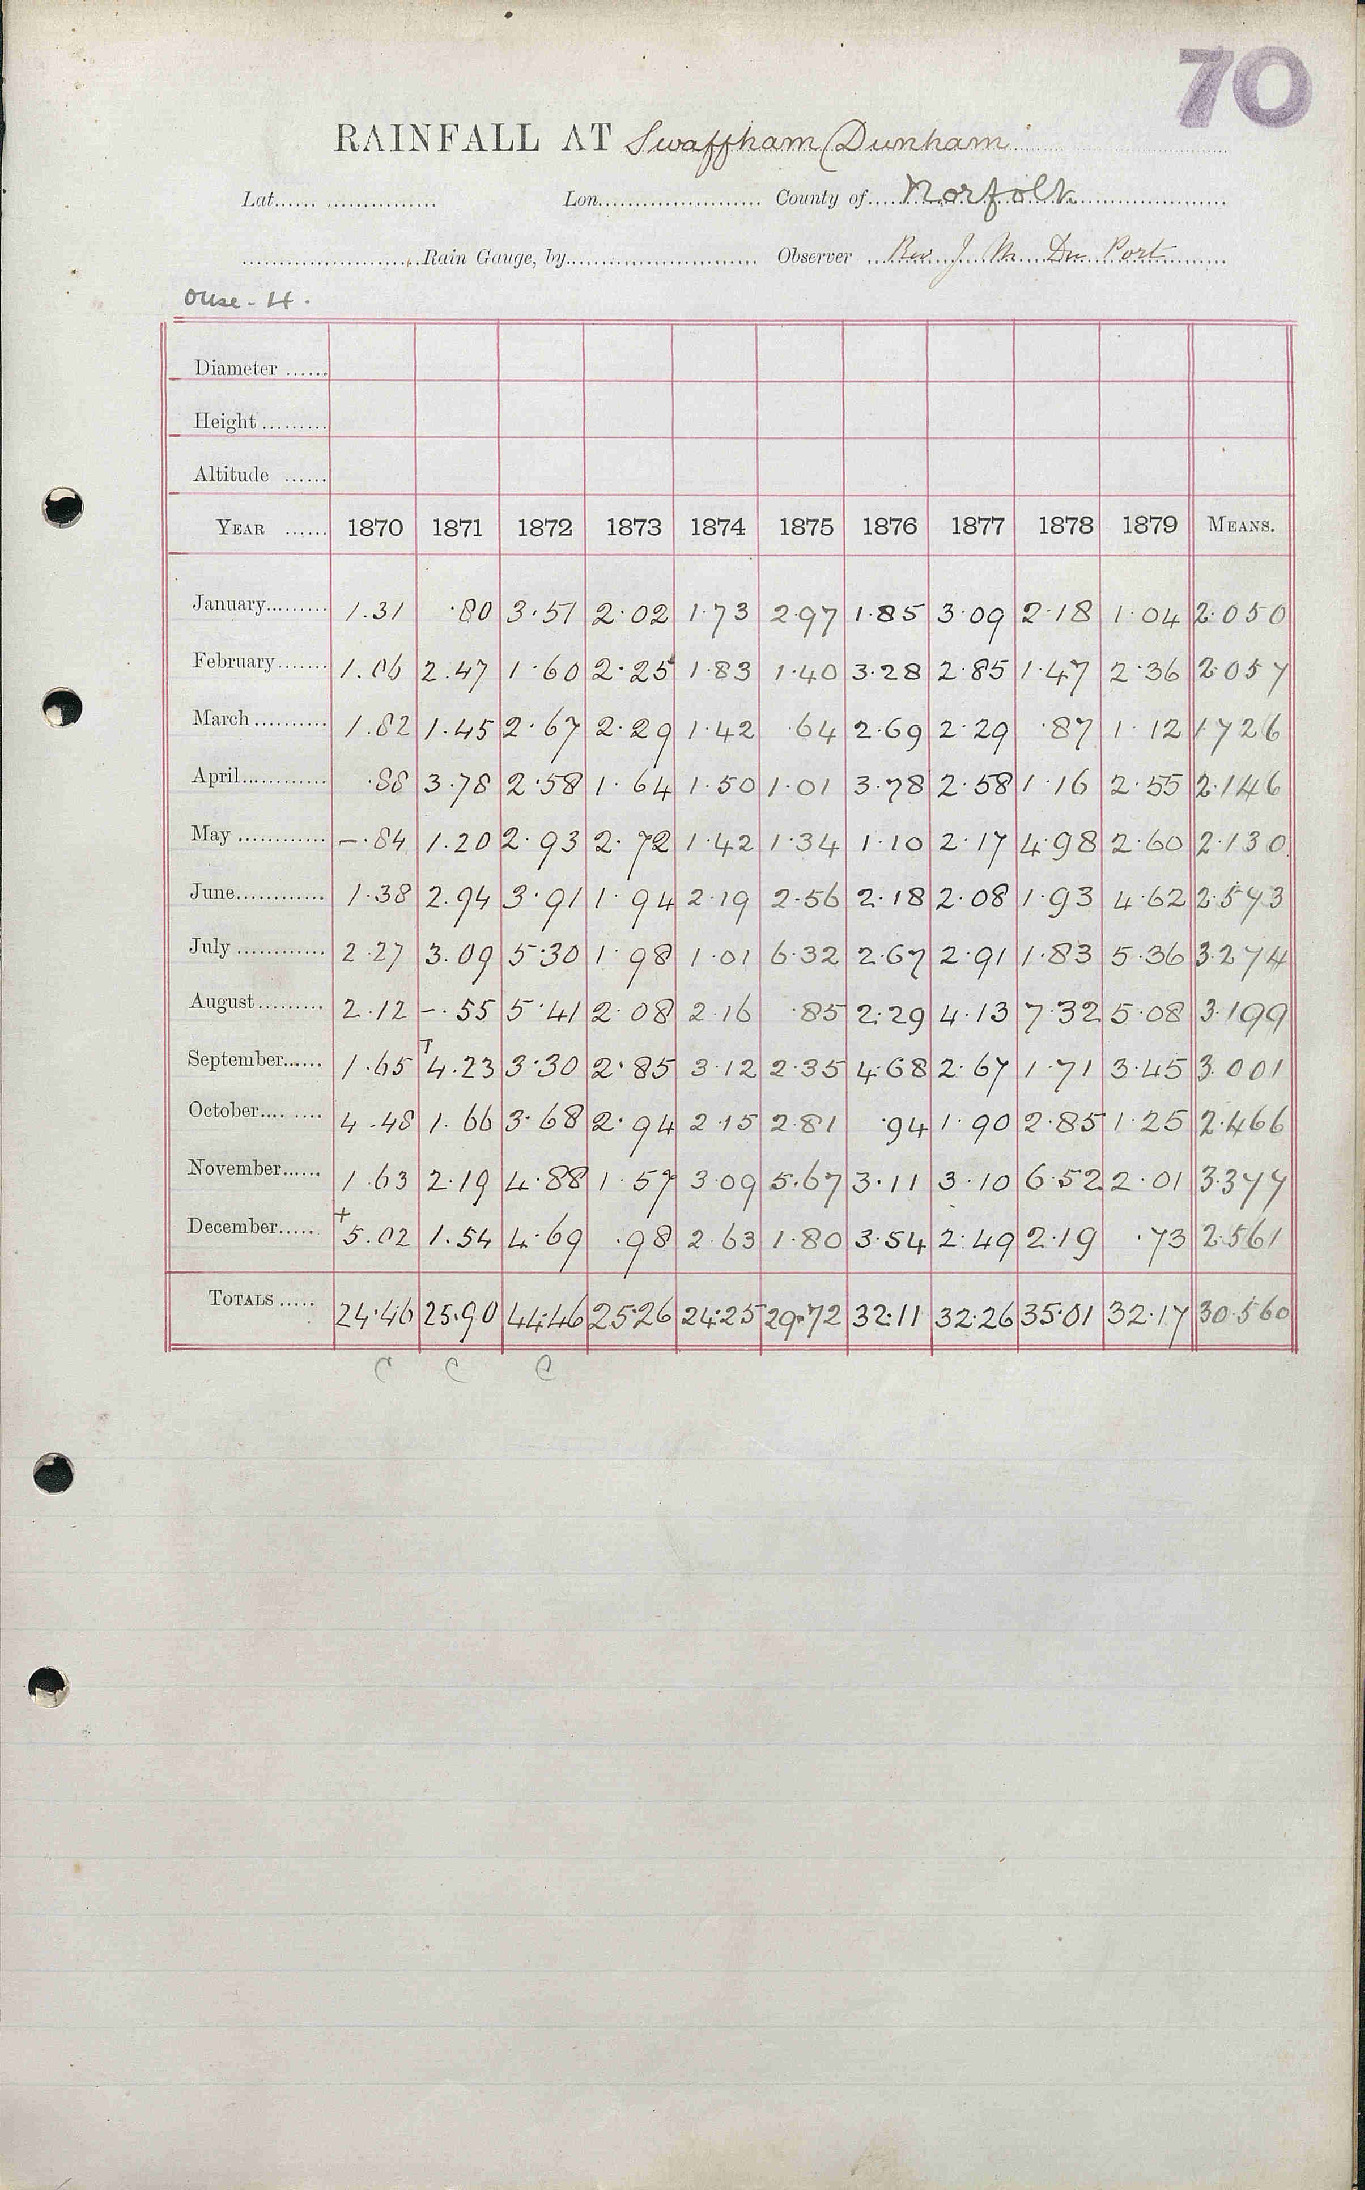 70
RAINFALL AT Swaffham (Dunham
Lat. Lon. County of Norfolk
Rain Gauge, by Observer Rev J. M. Du Port
Ouse - 4.
Diameter
Height
Altitude
YEAR 1870 1871 1872 1873 1874 1875 1876 1877 1878 1879 MEANS.
January 1.31 .80 3.51 2.02 1.73 2.97 1.85 3.09 2.18 1.04 2.050
February 1.06 2.47 1.60 2.25 1.83 1.40 3.28 2.85 1.47 2.36 2.057
March 1.82 1.45 2.67 2.29 1.42 .64 2.69 2.29 .87 1.12 1.726
April .88 3.78 2.58 1.64 1.50 1.01 3.78 2.58 1.16 2.55 2.146
May -.84 1.20 2.93 2.72 1.42 1.34 1.10 2.17 4.98 2.60 2.130
June 1.38 2.94 3.91 1.94 2.19 2.56 2.18 2.08 1.93 4.62 2.573
July 2.27 3.09 5.30 1.98 1.01 6.32 2.67 2.91 1.83 5.36 3.274
August 2.12 -.55 5.41 2.08 2.16 .85 2.29 4.13 7.32 5.08 3.199
September 1.65 +4.23 3.30 2.85 3.12 2.35 4.68 2.67 1.71 3.45 3.001
October 4.48 1.66 3.68 2.94 2.15 2.81 .94 1.90 2.85 1.25 2.466
November 1.63 2.19 4.88 1.57 3.09 5.67 3.11 3.10 6.52 2.01 3.377
December +5.02 1.54 4.69 .98 2.63 1.80 3.54 2.49 2.19 .73 2.561
TOTALS 24.46 25.90 44.46 25.26 24.25 29.72 32.11 32.26 35.01 32.17 30.560
C C C